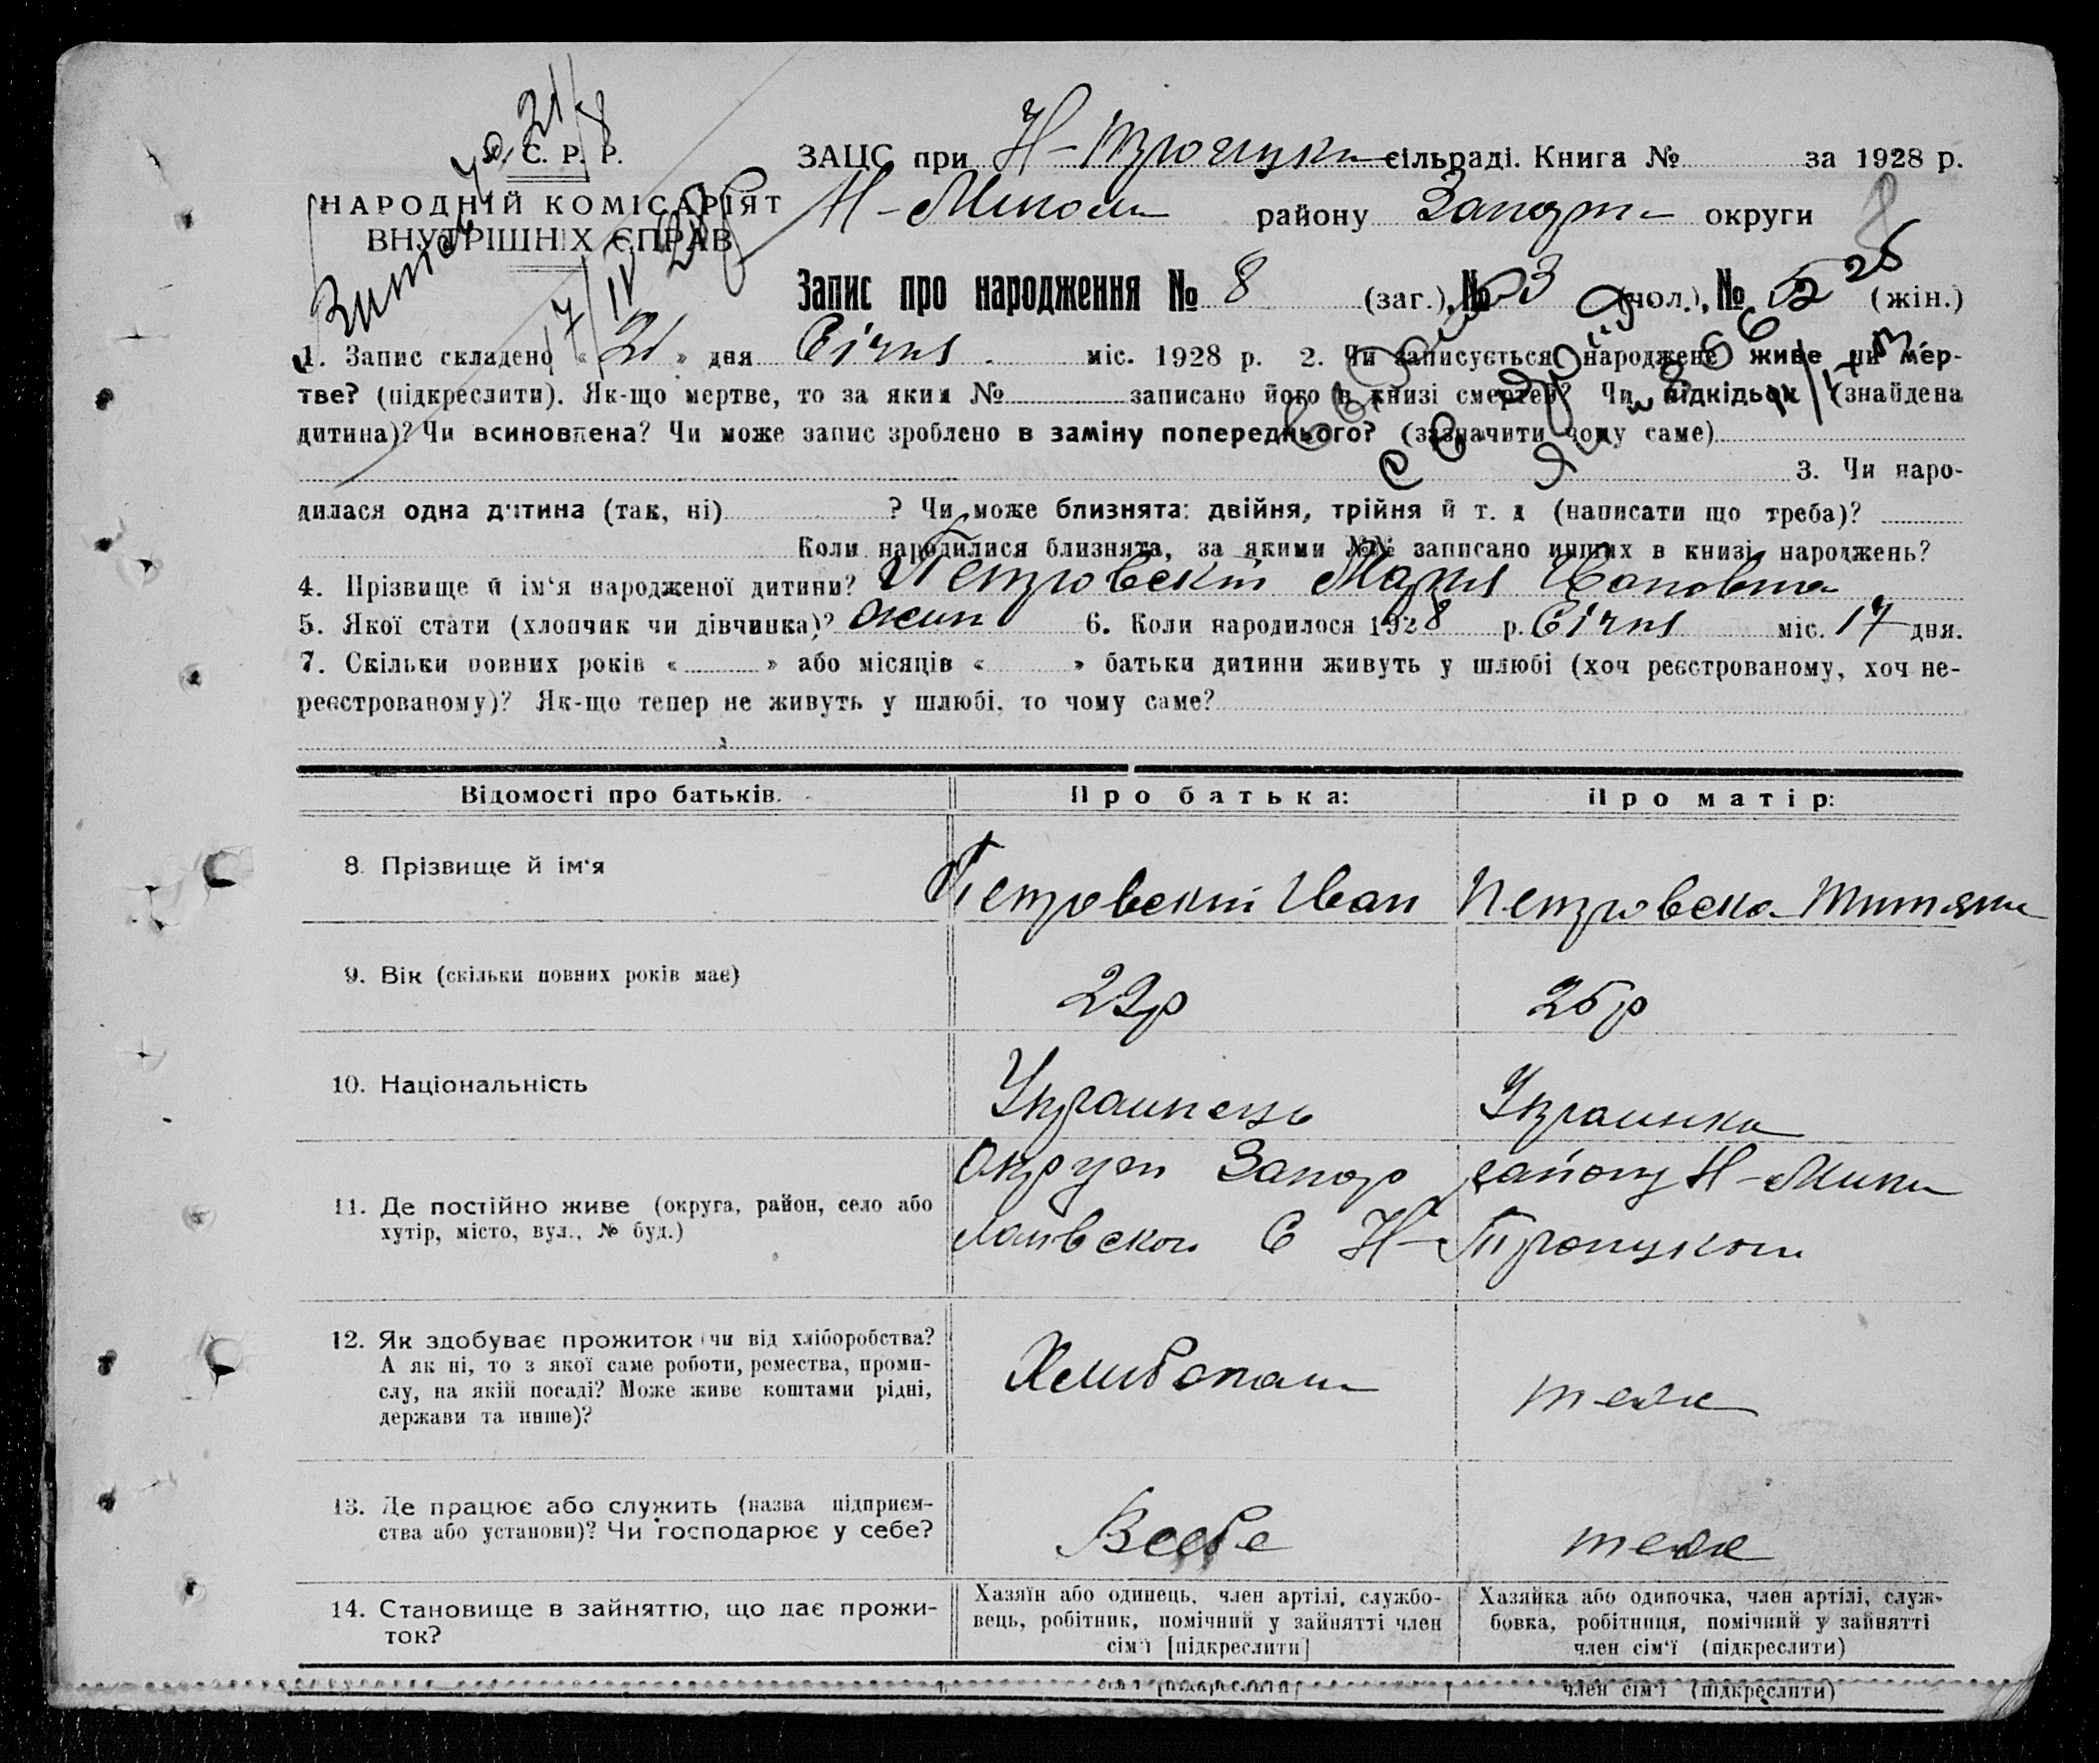 У. С. Р. Р.
НАРОДНІЙ КОМІСАРІЯТ
ВНУТРІШНІХ СПРАВ
ЗАЦС при Н-Троицки сільраді. Книга № за 1928 р.
Н-Микол району Запор округи
Запис про народження № 8 (заг.), № 3 (чол.), № 5 (жін.)
1. Запис складено «21» дня Січня міс. 1928 р. 2. Чи записується народжене живе чи мер-
тве? (підкреслити). Як-що мертве, то за яким № записано його в книзі смертей? Чи підкідьок (знайдена
дитина)? Чи всиновлена? Чи може запис зроблено в заміну попереднього? (зазначити чому саме)
3. Чи наро-
дилася одна дитина (так, ні) ? Чи може близнята: двійня, трійня й т. д (написати що треба)?
Коли народилися близнята, за якими №№ записано инших в книзі народжень?
4. Прізвище й ім'я народженої дитини? Петровский Мария Ивановна
5. Якої стати (хлопчик чи дівчинка)? жин 6. Коли народилося 1928 р. Січня міс. 17 дня.
7. Скільки повних років « » або місяців « » батьки дитини живуть у шлюбі (хоч реєстрованому, хоч не-
реєстрованому)? Як-що тепер не живуть у шлюбі, то чому саме?
Відомості про батьків. Про батька: Про матір:
8. Прізвище й ім'я Петровский Иван Петровска
9. Вік (скільки повних років має) 22р 25р
10. Національність Украинець Украинка
11. Де постійно живе (округа, район, село або
хутір, місто, вул., № буд.)
Округи Запор району Н-Мико
лаивского С Н-Троицкого
12. Як здобуває прожиток (чи від хліборобства?
А як ні, то з якої саме роботи, ремества, проми-
слу, на якій посаді? Може живе коштами рідні,
держави та инше)?
теж
13. Де працює або служить (назва підприєм-
ства або установи)? Чи господарює у себе?
В себе теж
14. Становище в зайняттю, що дає прожи-
ток?
Хазяїн або одинець, член артілі, службо-
вець, робітник, помічний у зайнятті член
сім'ї [підкреслити]
Хазяйка або одиночка, член артілі, служ-
бовка, робітниця, помічний у зайнятті
член сім'ї (підкреслити)
член сім'ї (підкреслити)